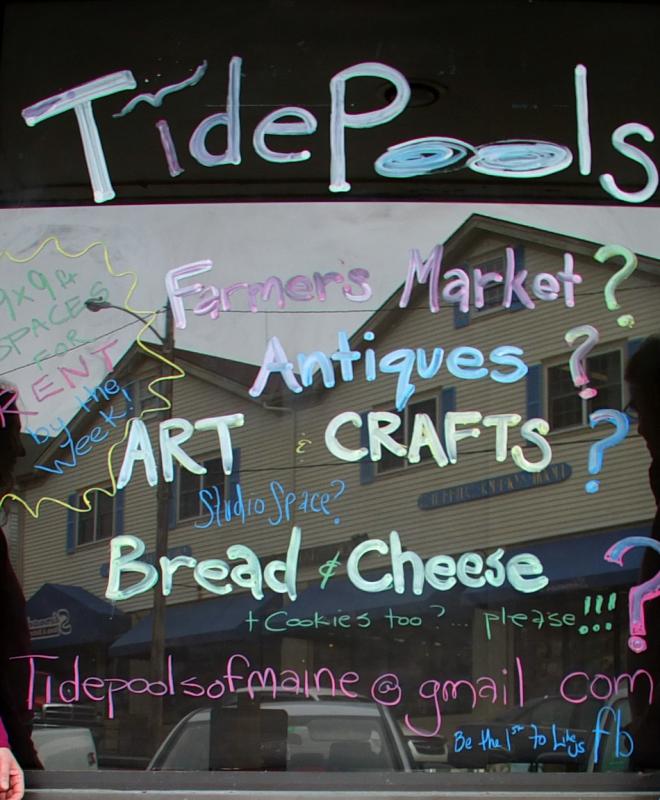 TidePools
Farmer's Market?
9x9 ft
SPACES
FOR
RENT
by the
week!
Antiques?
ART & CRAFTS?
Studio Space?
Bread & Cheese?
+ Cookies too?... please!!!
Tidepoolsofmaine@gmail.com
Be the 1st to Like us fb